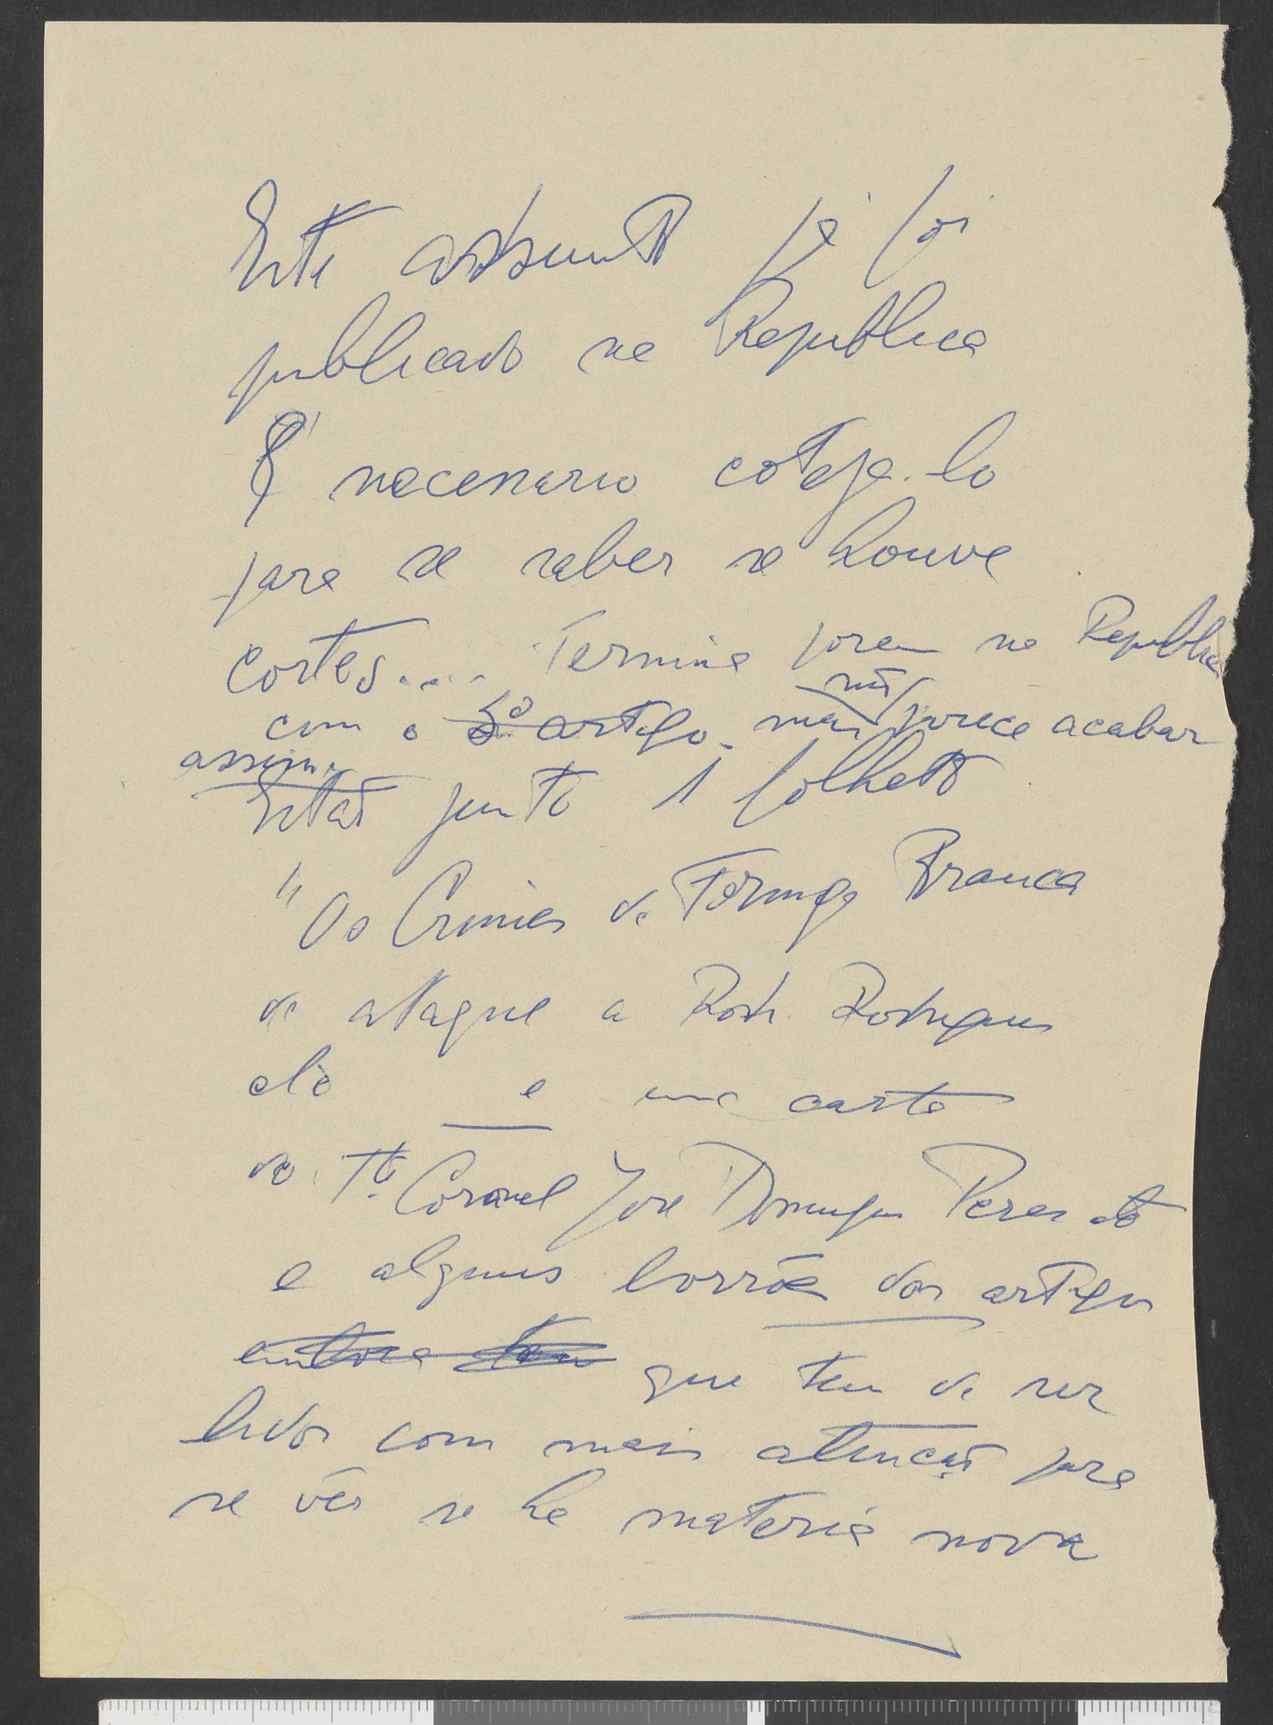 Este assunto já foi
publicado na Republica
É necessario coteja-lo
para se saber se houve
cortes.... Termina porem na Republica
com o 3º artigo mas não parece acabar
assim.
Estão junto 1 folheto
"Os Crimes da Formiga Branca
de ataque a Rod. Rodrigues
e uma carta
do Tte. Coronel José Domingues Peres
e alguns borrões dos artigos
embora tem que tem de ser
lidos com mais atenção para
se vêr se ha materia nova